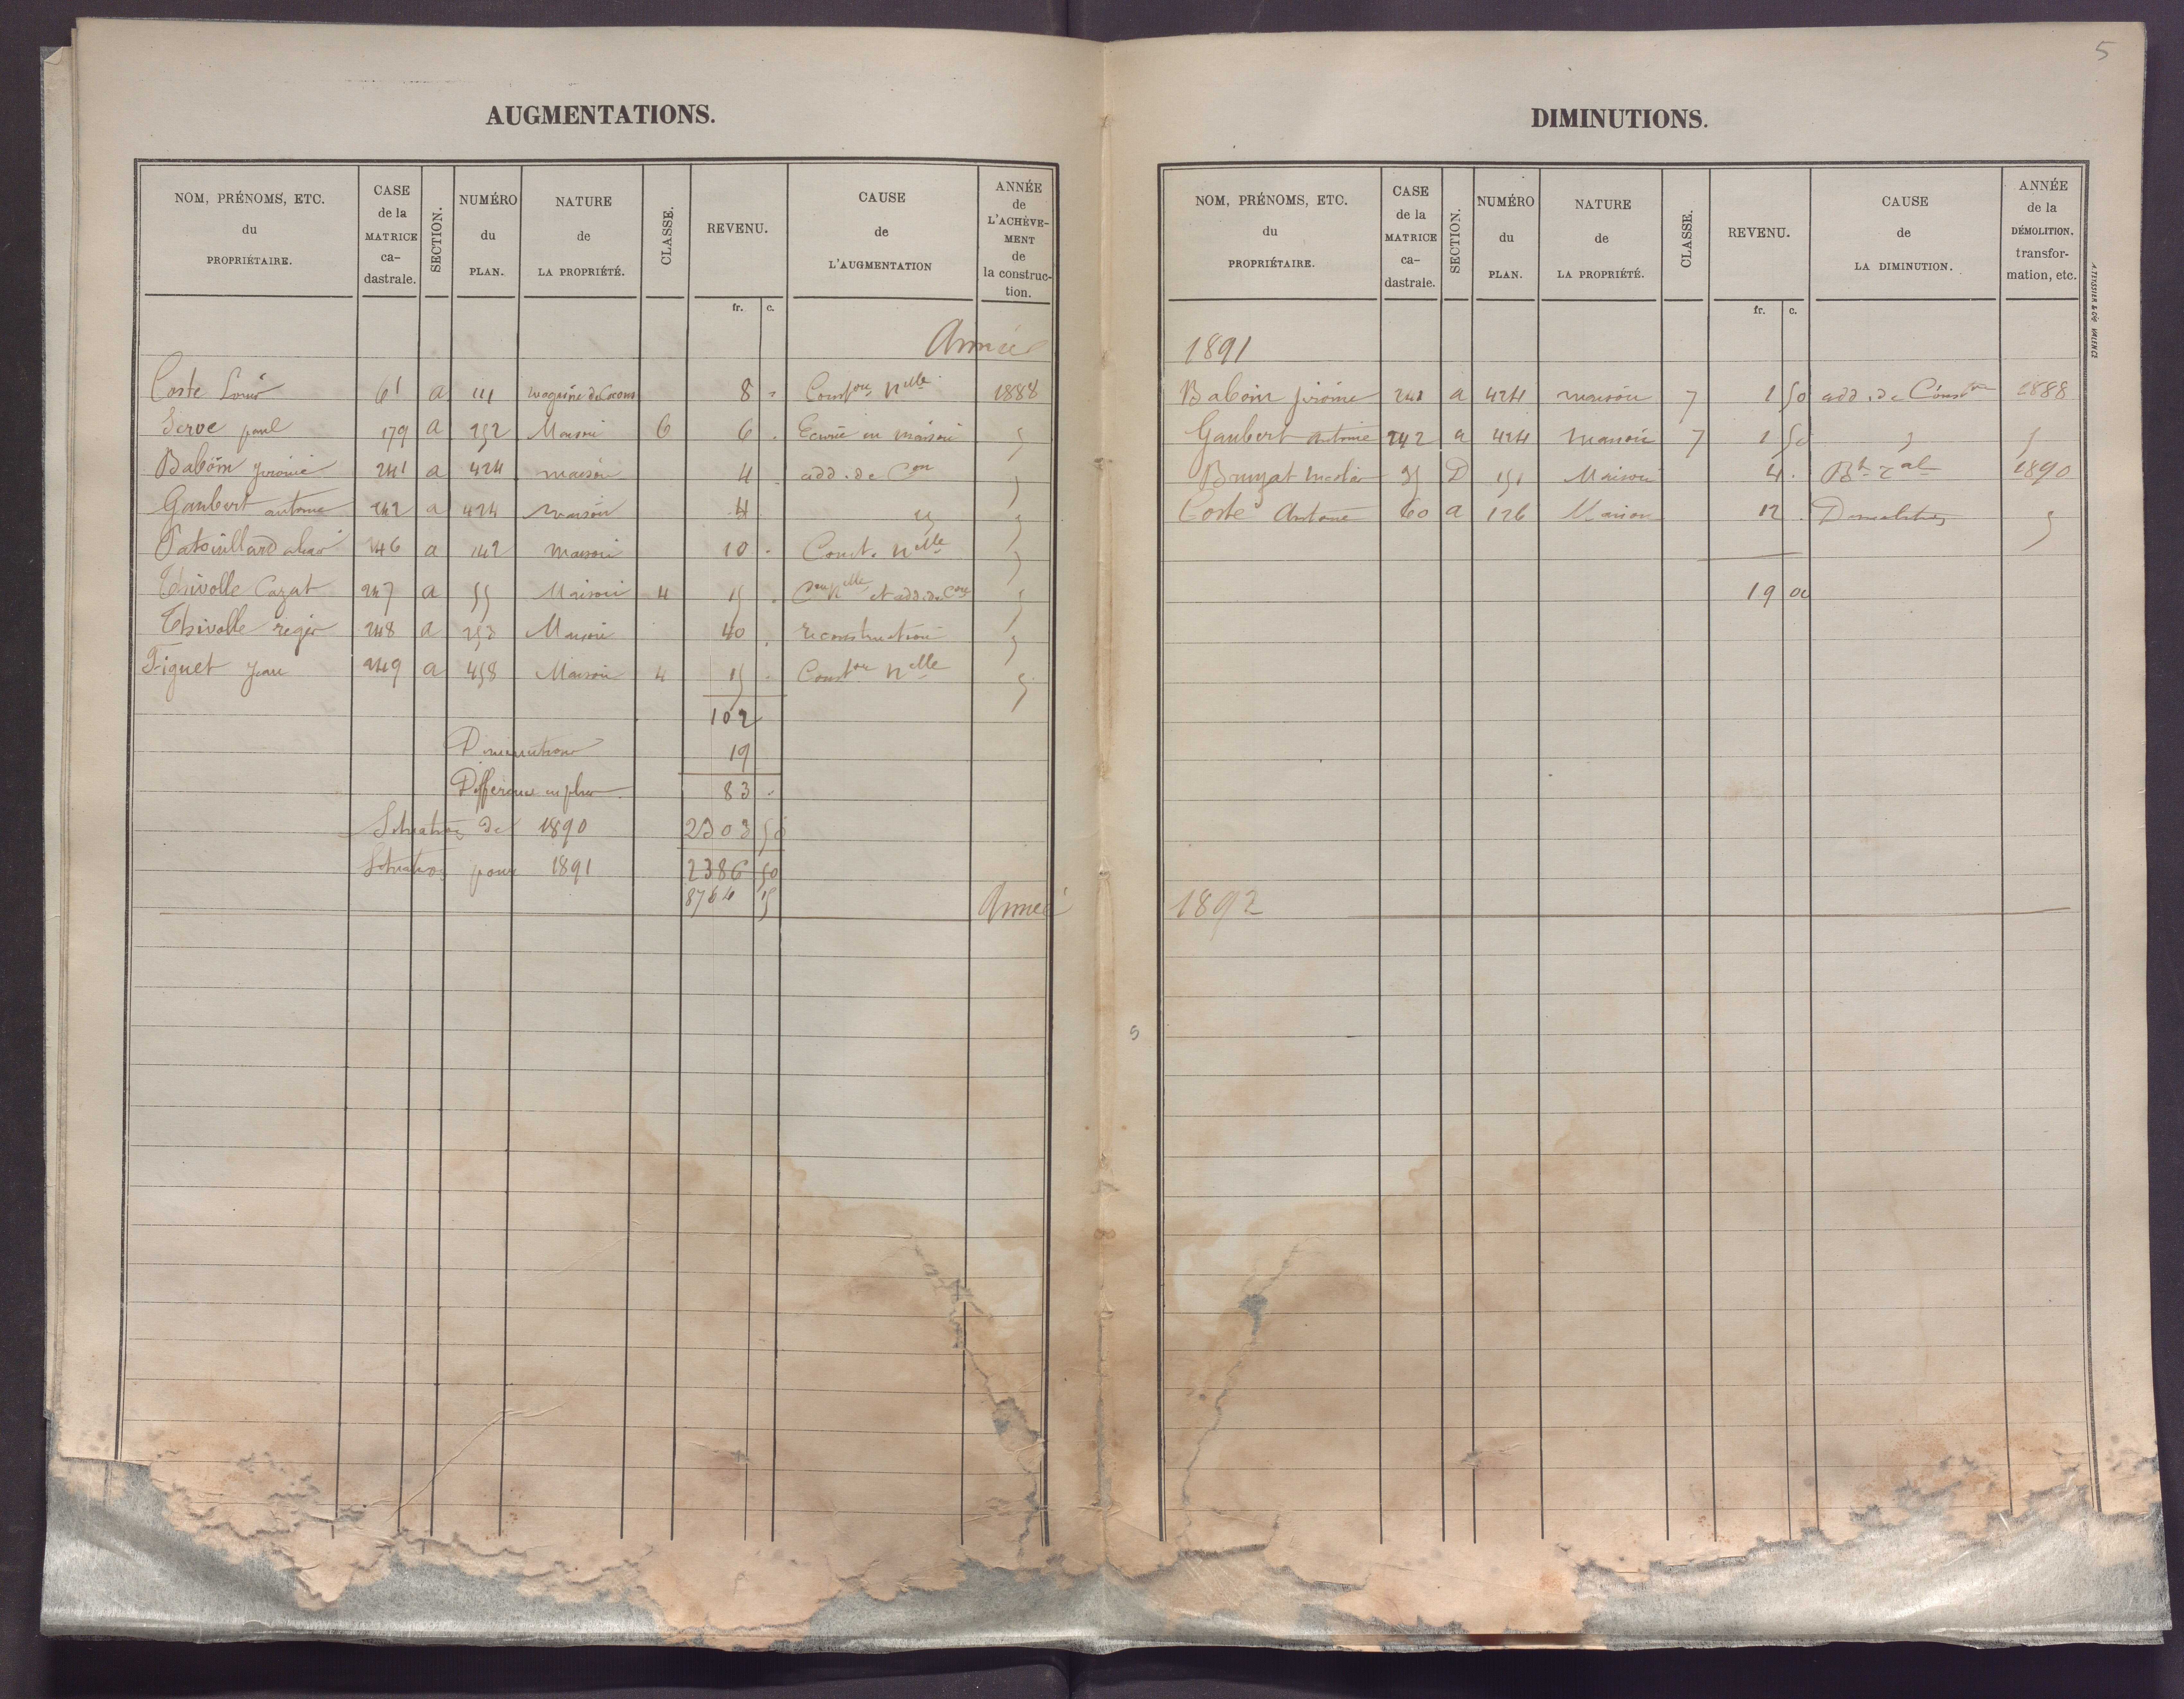 5
AUGMENTATIONS.
NOM, PRÉNOMS, ETC. du PROPRIÉTAIRE.
CASE de la MATRICE ca- dastrale.
SECTION.
NUMÉRO du PLAN.
NATURE de LA PROPRIÉTÉ.
CLASSE.
REVENU.
fr. c.
CAUSE de L'AUGMENTATION
ANNÉE de L'ACHÈVE- MENT de la construc- tion.
Année
Coste Louis 61 a 111 magasin de Cocons 8 " Conston nlle 1888
Serve paul 179 a 252 Maison 6 6 . Ecurie en maison "
Baboin jérome 241 a 424 maison 4 . add. de Con "
Gaubert antoine 242 a 424 maison 4 . " "
246 a 142 maison 10 . Const. nlle "
Thivolle Cazat 247 a 55 Maison 4 15 . Con nlle et add. de Con "
Thivolle regis 248 a 253 Maison 40 . reconstruction "
Figuet jean 249 a 458 Maison 4 15 . Conston nlle "
102
Diminutions 19
Différence en plus 83 .
Situation de 1890 2303 50
Situation pour 1891 2386 50
8764 15
Année
DIMINUTIONS.
NOM, PRÉNOMS, ETC. du PROPRIÉTAIRE.
CASE de la MATRICE ca- dastrale.
SECTION.
NUMÉRO du PLAN.
NATURE de LA PROPRIÉTÉ.
CLASSE.
REVENU.
fr. c.
CAUSE de LA DIMINUTION.
ANNÉE de la DÉMOLITION, transfor- mation, etc.
1891
Baboin jérome 241 a 424 maison 7 1 50 add. de Conston 1888
Gaubert antoine 242 a 424 maison 7 1 50 " "
35 D 151 Maison 4 . 1890
Coste Antoine 60 a 126 Maison 12 . Demolition "
19 00
1892
5
A. TEYSSIER & Cie VALENCE